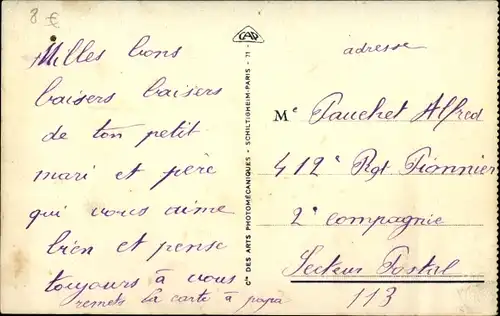 8 €
Milles bons
baisers baisers
de ton petit
mari et père
qui vous aime
bien et pense
toujours à vous
remets la carte à papa
CAP
Cie DES ARTS PHOTOMÉCANIQUES - SCHILTIGHEIM-PARIS - 71 -
adresse
Me Pauchet Alfred
412e Rgt Pionnier
2e compagnie
Secteur Postal
113